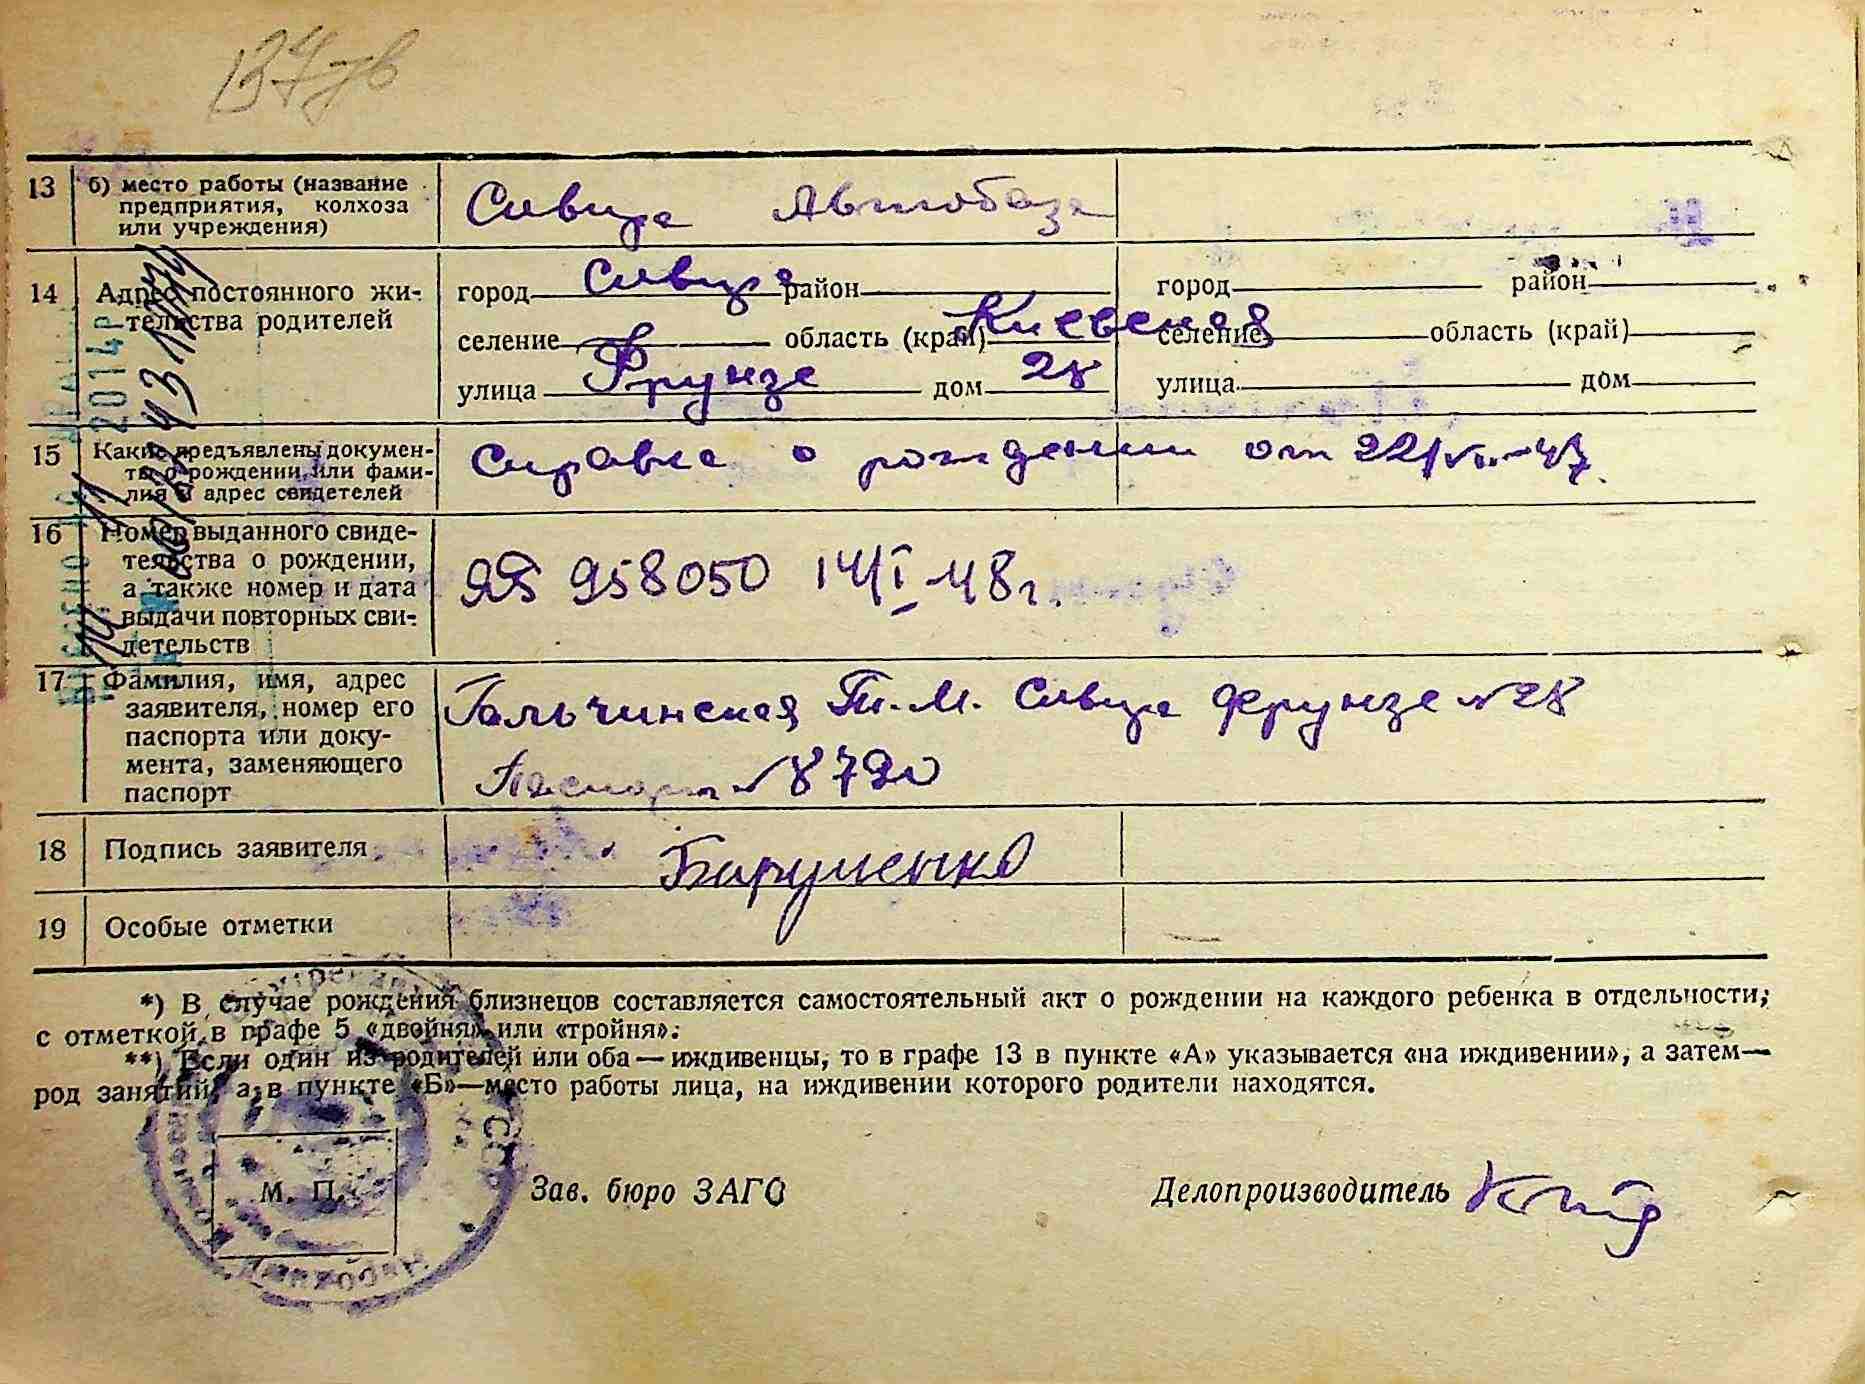 13 б) место работы (название
предприятия, колхоза
или учреждения)
Сквира Автобаза
14 Адрес постоянного жи-
тельства родителей
город Сквира район
селение область (край) Киевская
улица Фрунзе дом 28
город район
селение область (край)
улица дом
15 Какие предъявлены докумен-
ты о рождении, или фами-
лия и адрес свидетелей
Справка о рождении от 22/VII-47
16 Номер выданного свиде-
тельства о рождении,
а также номер и дата
выдачи повторных сви-
детельств
958050 14/I-48г.
17 Фамилия, имя, адрес
заявителя, номер его
паспорта или доку-
мента, заменяющего
паспорт
Гальчинская Т. М. Сквира Фрунзе №28
Паспорт № 8720
18 Подпись заявителя
19 Особые отметки
*) В случае рождения близнецов составляется самостоятельный акт о рождении на каждого ребенка в отдельности,
с отметкой в графе 5 «двойня» или «тройня».
**) Если один из родителей или оба — иждивенцы, то в графе 13 в пункте «А» указывается «на иждивении», а затем—
род занятий, а в пункте «Б»—место работы лица, на иждивении которого родители находятся.
М. П.
Зав. бюро ЗАГС
Делопроизводитель
2014